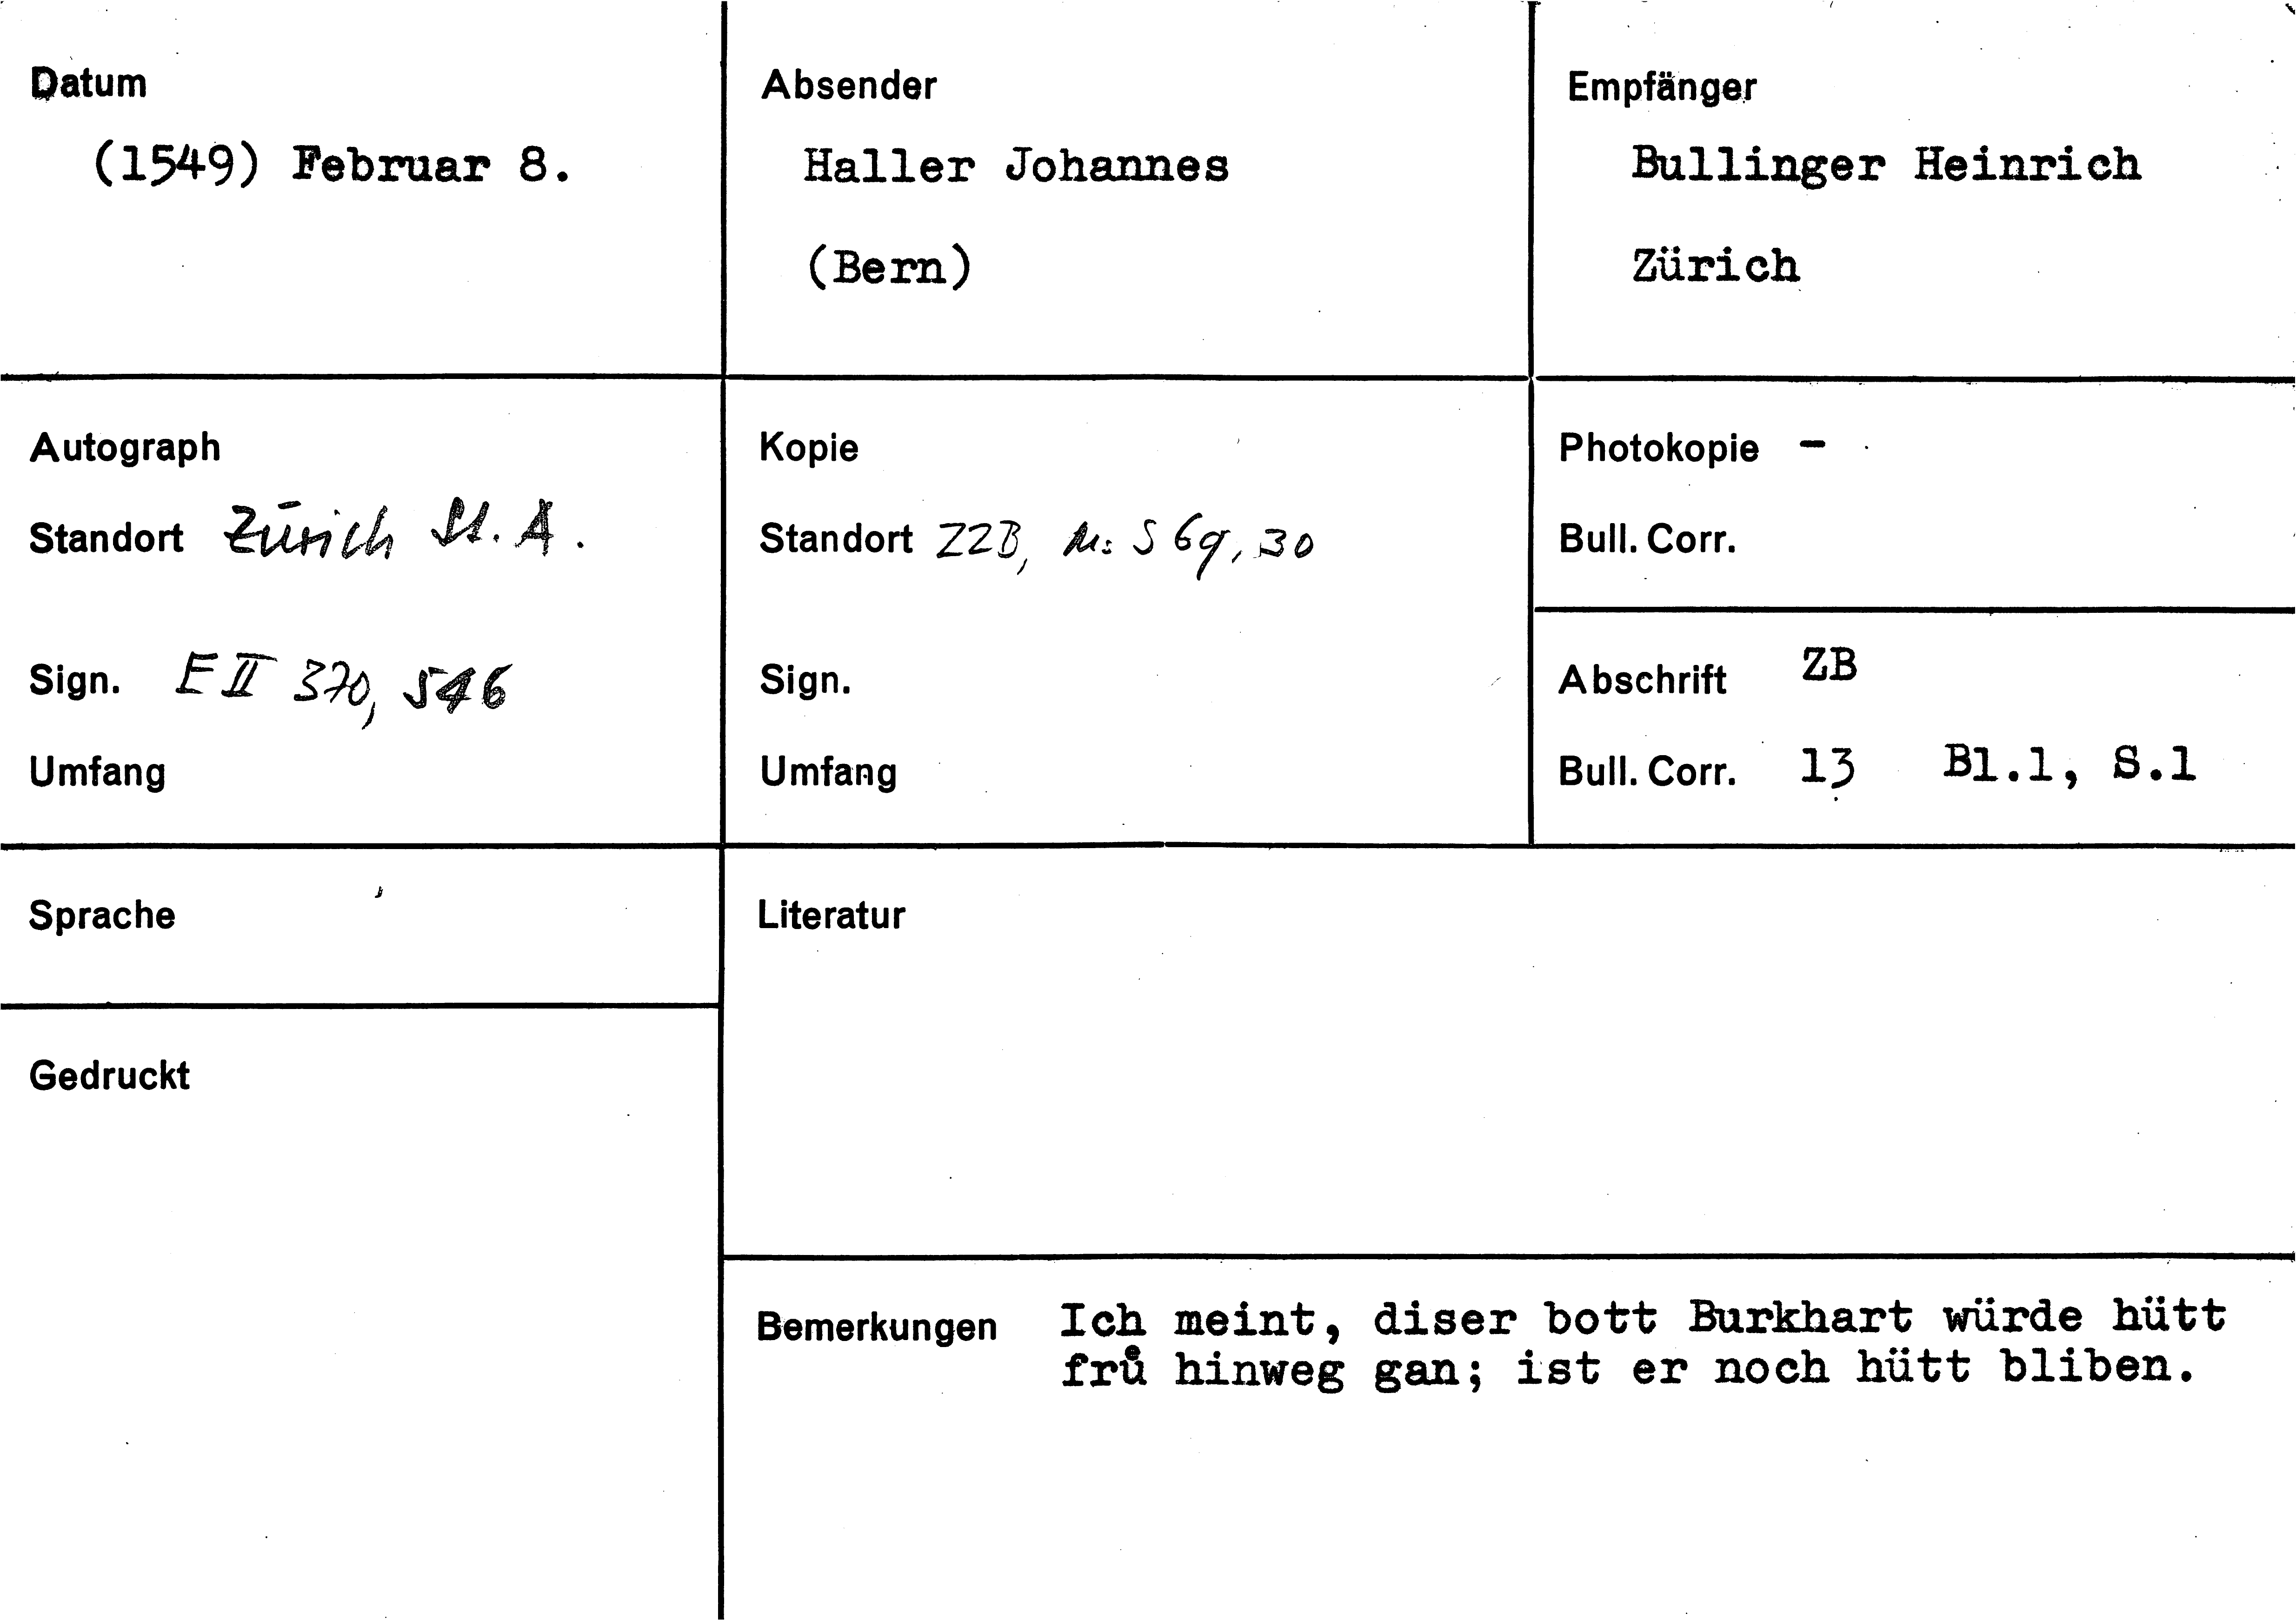 Datum
(1549) Februar 8.
Absender
Haller Johannes
(Bern)
Empfänger
Bullinger Heinrich
Zürich
Autograph
Standort Zürich St. A.
Sign. E II 370, 546
Umfang
Kopie
Standort ZZB, Ms S 69, 30
Sign.
Umfang
Photokopie -
Bull. Corr.
Abschrift ZB
Bull. Corr. 13 Bl.1, S.1
Sprache
Literatur
Gedruckt
Bemerkungen Ich meint, diser bott Burkhart würde hütt
fruͤ hinweg gan; ist er noch hütt bliben.